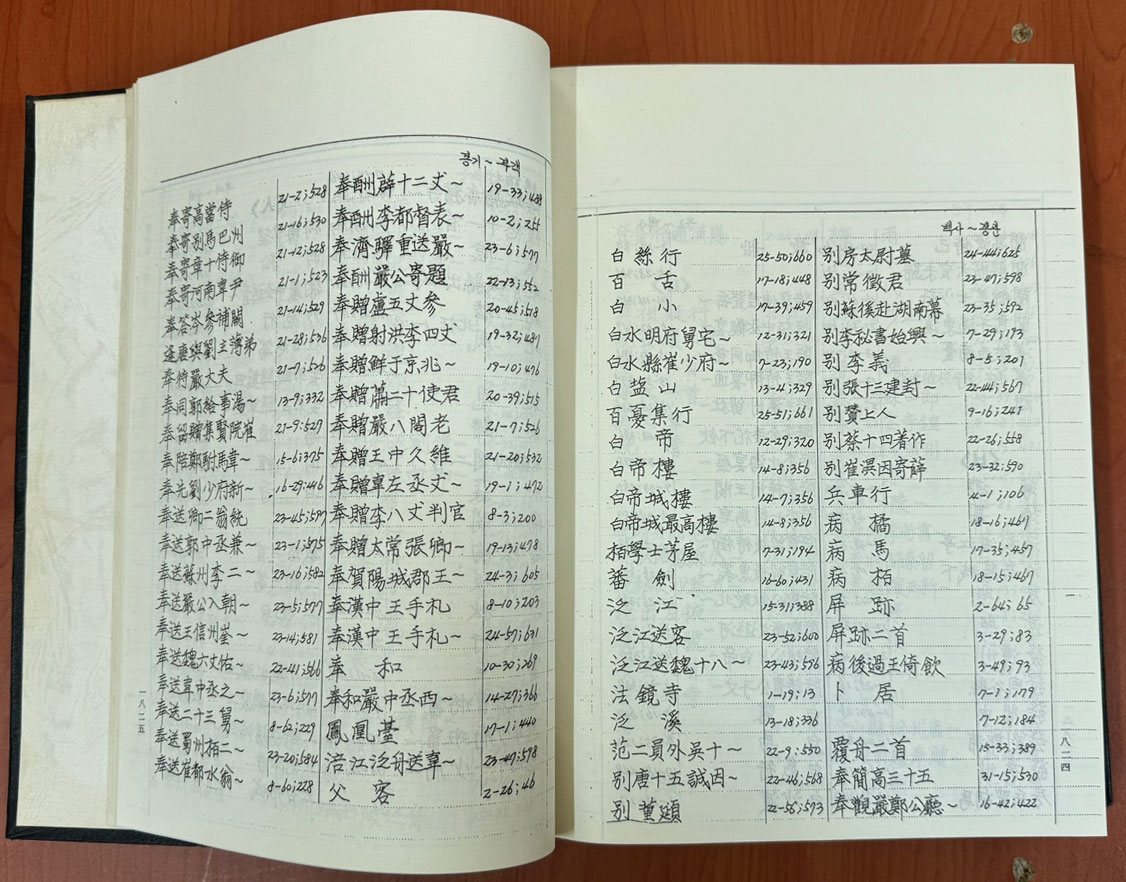 백사~봉관
白絲行 25-50;660
百舌 17-18;448
白小 17-39;459
白水明府舅宅~ 12-31;321
白水縣崔少府~ 7-23;190
白塩山 13-4;329
百憂集行 25-51;661
白帝 12-29;320
白帝樓 14-8;356
白帝城樓 14-7;356
白帝城最高樓 14-8;356
栢學士茅屋 7-31;194
蕃劍 16-60;431
泛江 15-31;388
泛江送客 23-52;600
泛江送魏十八~ 23-43;596
法鏡寺 1-19;13
泛溪 13-18;336
范二員外吳十~ 22-9;550
別唐十五誡因~ 22-46;568
別董頲 22-56;573
別房太尉墓 24-44;625
別常徵君 23-47;598
別蘇徯赴湖南幕 23-35;592
別李秘書始興~ 7-29;193
別李義 8-5;201
別張十三建封~ 22-44;567
別贊上人 9-16;241
別蔡十四著作 22-26;558
別崔潩因寄薛 23-32;590
兵車行 4-1;106
病橘 18-16;467
病馬 17-35;457
病柏 18-15;467
屏跡 2-64;65
屏跡二首 3-29;83
病後過王倚飲 3-49;93
卜居 7-1;179
7-12;184
覆舟二首 15-33;389
奉簡高三十五 31-15;530
奉觀嚴鄭公廳~ 16-42;422
一八二四
봉기~부객
奉寄高當侍 21-2;528
奉寄別馬巴州 21-16;530
奉寄章十侍御 21-12;528
奉寄河南韋尹 21-1;523
奉答岑參補闕 21-14;529
逢唐興劉主簿弟 21-28;536
奉待嚴大夫 21-7;526
奉同郭給事湯~ 13-9;332
奉留贈集賢院崔 21-9;527
奉陪鄭駙馬韋~ 15-6;375
奉先劉少府新~ 16-29;446
奉送卿二翁統 23-45;597
奉送郭中丞兼~ 23-1;575
奉送蘇州李二~ 23-16;582
奉送嚴公入朝~ 23-5;577
奉送王信州崟~ 23-14;581
奉送魏六丈佑~ 22-41;566
奉送韋中丞之~ 23-6;577
奉送二十三舅~ 8-62;229
奉送蜀州栢二~ 23-20;584
奉送崔都水翁~ 8-60;228
奉酬薜十二丈~ 19-33;488
奉酬李都督表~ 10-2;255
奉濟驛重送嚴~ 23-6;577
奉酬嚴公寄題 22-13;552
奉贈盧五丈參 20-45;518
奉贈射洪李四丈 19-32;487
奉贈鮮于京兆~ 19-10;476
奉贈蕭二十使君 20-39;515
奉贈嚴八閣老 21-7;526
奉贈王中久維 21-20;532
奉贈韋左丞丈~ 19-1;472
奉贈李八丈判官 8-3;200
奉贈太常張卿~ 19-13;478
奉賀陽城郡王~ 24-3;605
奉漢中王手札 8-10;203
奉漢中王手札~ 24-57;631
奉和 10-30;269
奉和嚴中丞西~ 14-27;366
鳳凰臺 17-1;440
涪江泛舟送韋~ 23-47;598
父客 2-26;46
一八二五